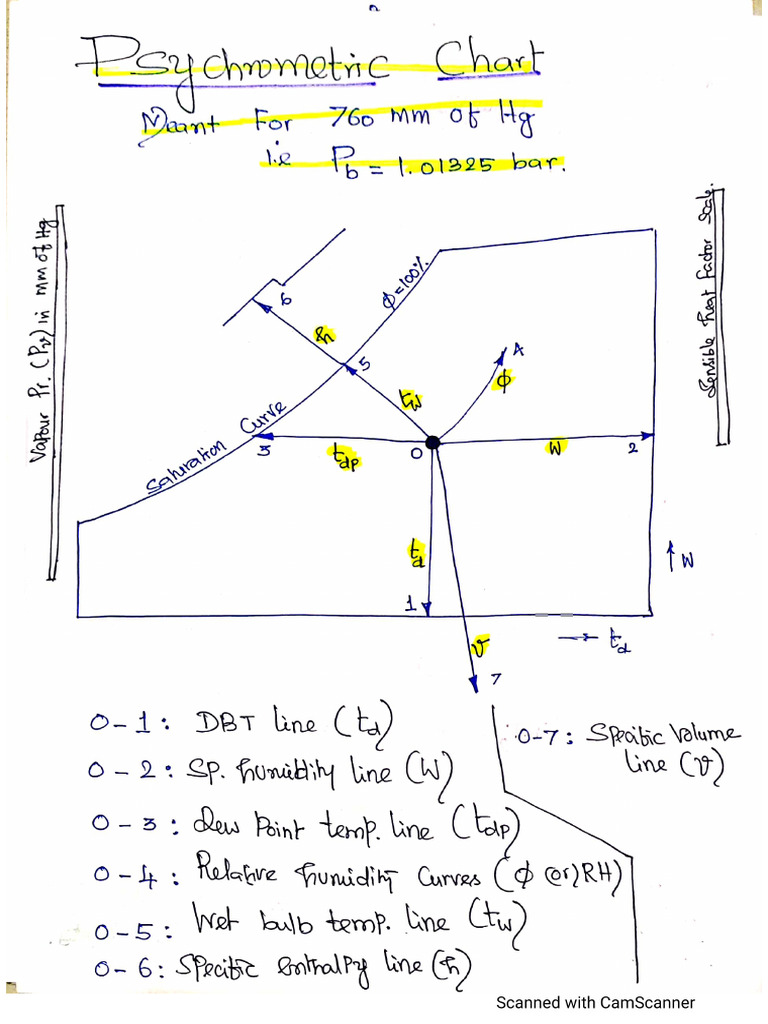 Psychrometric Chart
Meant For 760 mm of Hg
i.e Pb = 1.01325 bar.
Vapour Pr. (Pv) in mm of Hg
Sensible Heat Factor Scale.
ϕ=100%
6
h
5
A
ϕ
tw
Saturation Curve
3
tdp
0
W
2
td
1
↑ W
→ td
v
7
0-1: DBT line (td)
0-2: Sp. humidity line (W)
0-3: Dew Point temp. line (tdp)
0-4: Relative humidity Curves (ϕ (or) RH)
0-5: Wet bulb temp. line (tw)
0-6: Specific Enthalpy line (h)
0-7: Specific Volume
line (v)
Scanned with CamScanner